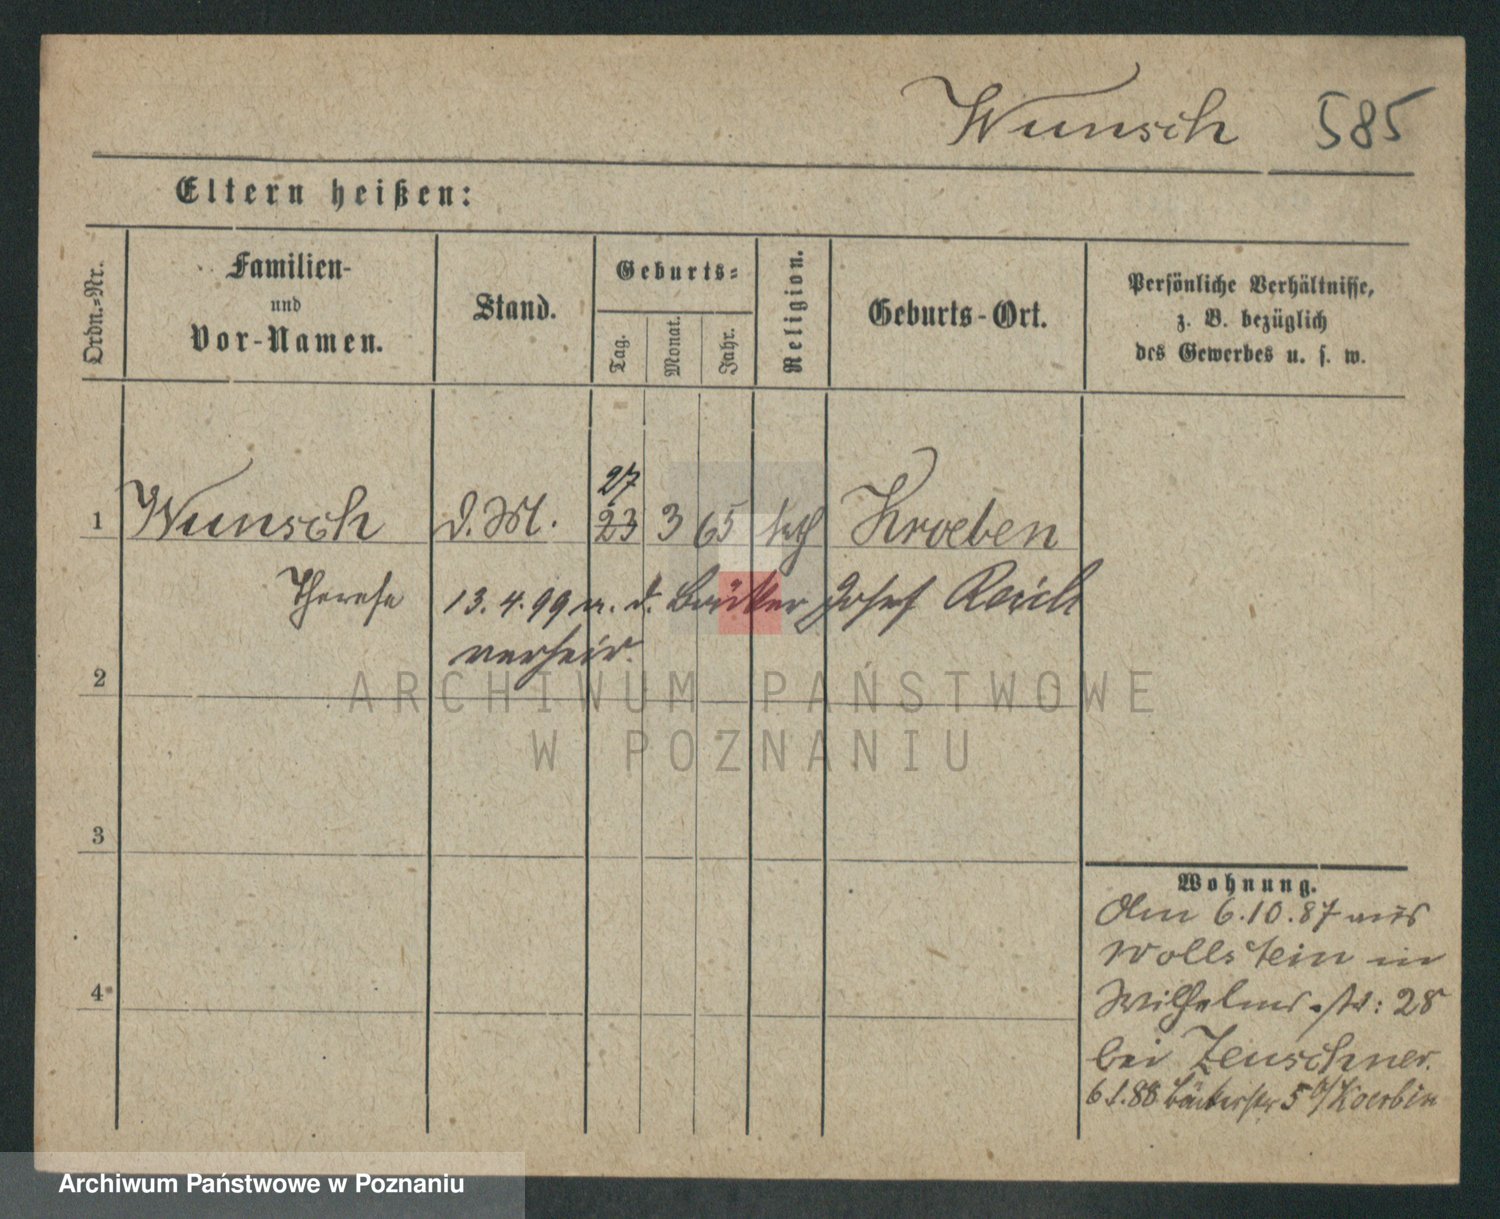 Wunsch 585
Eltern heißen:
Ordn.-Nr.
Familien-
und
Vor-Namen.
Stand.
Geburts-
Tag.
Monat.
Jahr.
Religion.
Geburts-Ort.
Persönliche Verhältnisse,
z. B. bezüglich
des Gewerbes u. s. w.
27
1 Wunsch d. M. 23 3 65 kath Kroeben
Therese 13.4.99 m. d. Josef Reich
verheir.
2
ARCHIWUM PAŃSTWOWE
W POZNANIU
3
Wohnung.
Am 6.10.87 aus
Wollstein in
Wilhelms.str: 28
bei Zeuschner.
6 1.88 Bäckerstr 5
4
Archiwum Państwowe w Poznaniu